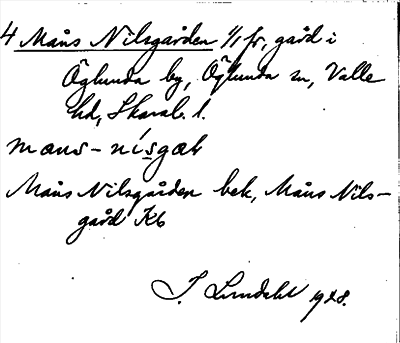 4 Måns Nilsgården 1/1 fr, gård i
Öglunda by, Öglunda sn, Valle
hd, Skarab. l.
mɑns-nísgæɫɩ
Måns Nilsgården bek, Måns Nils-
gård Kb
I. Lundahl 1928.